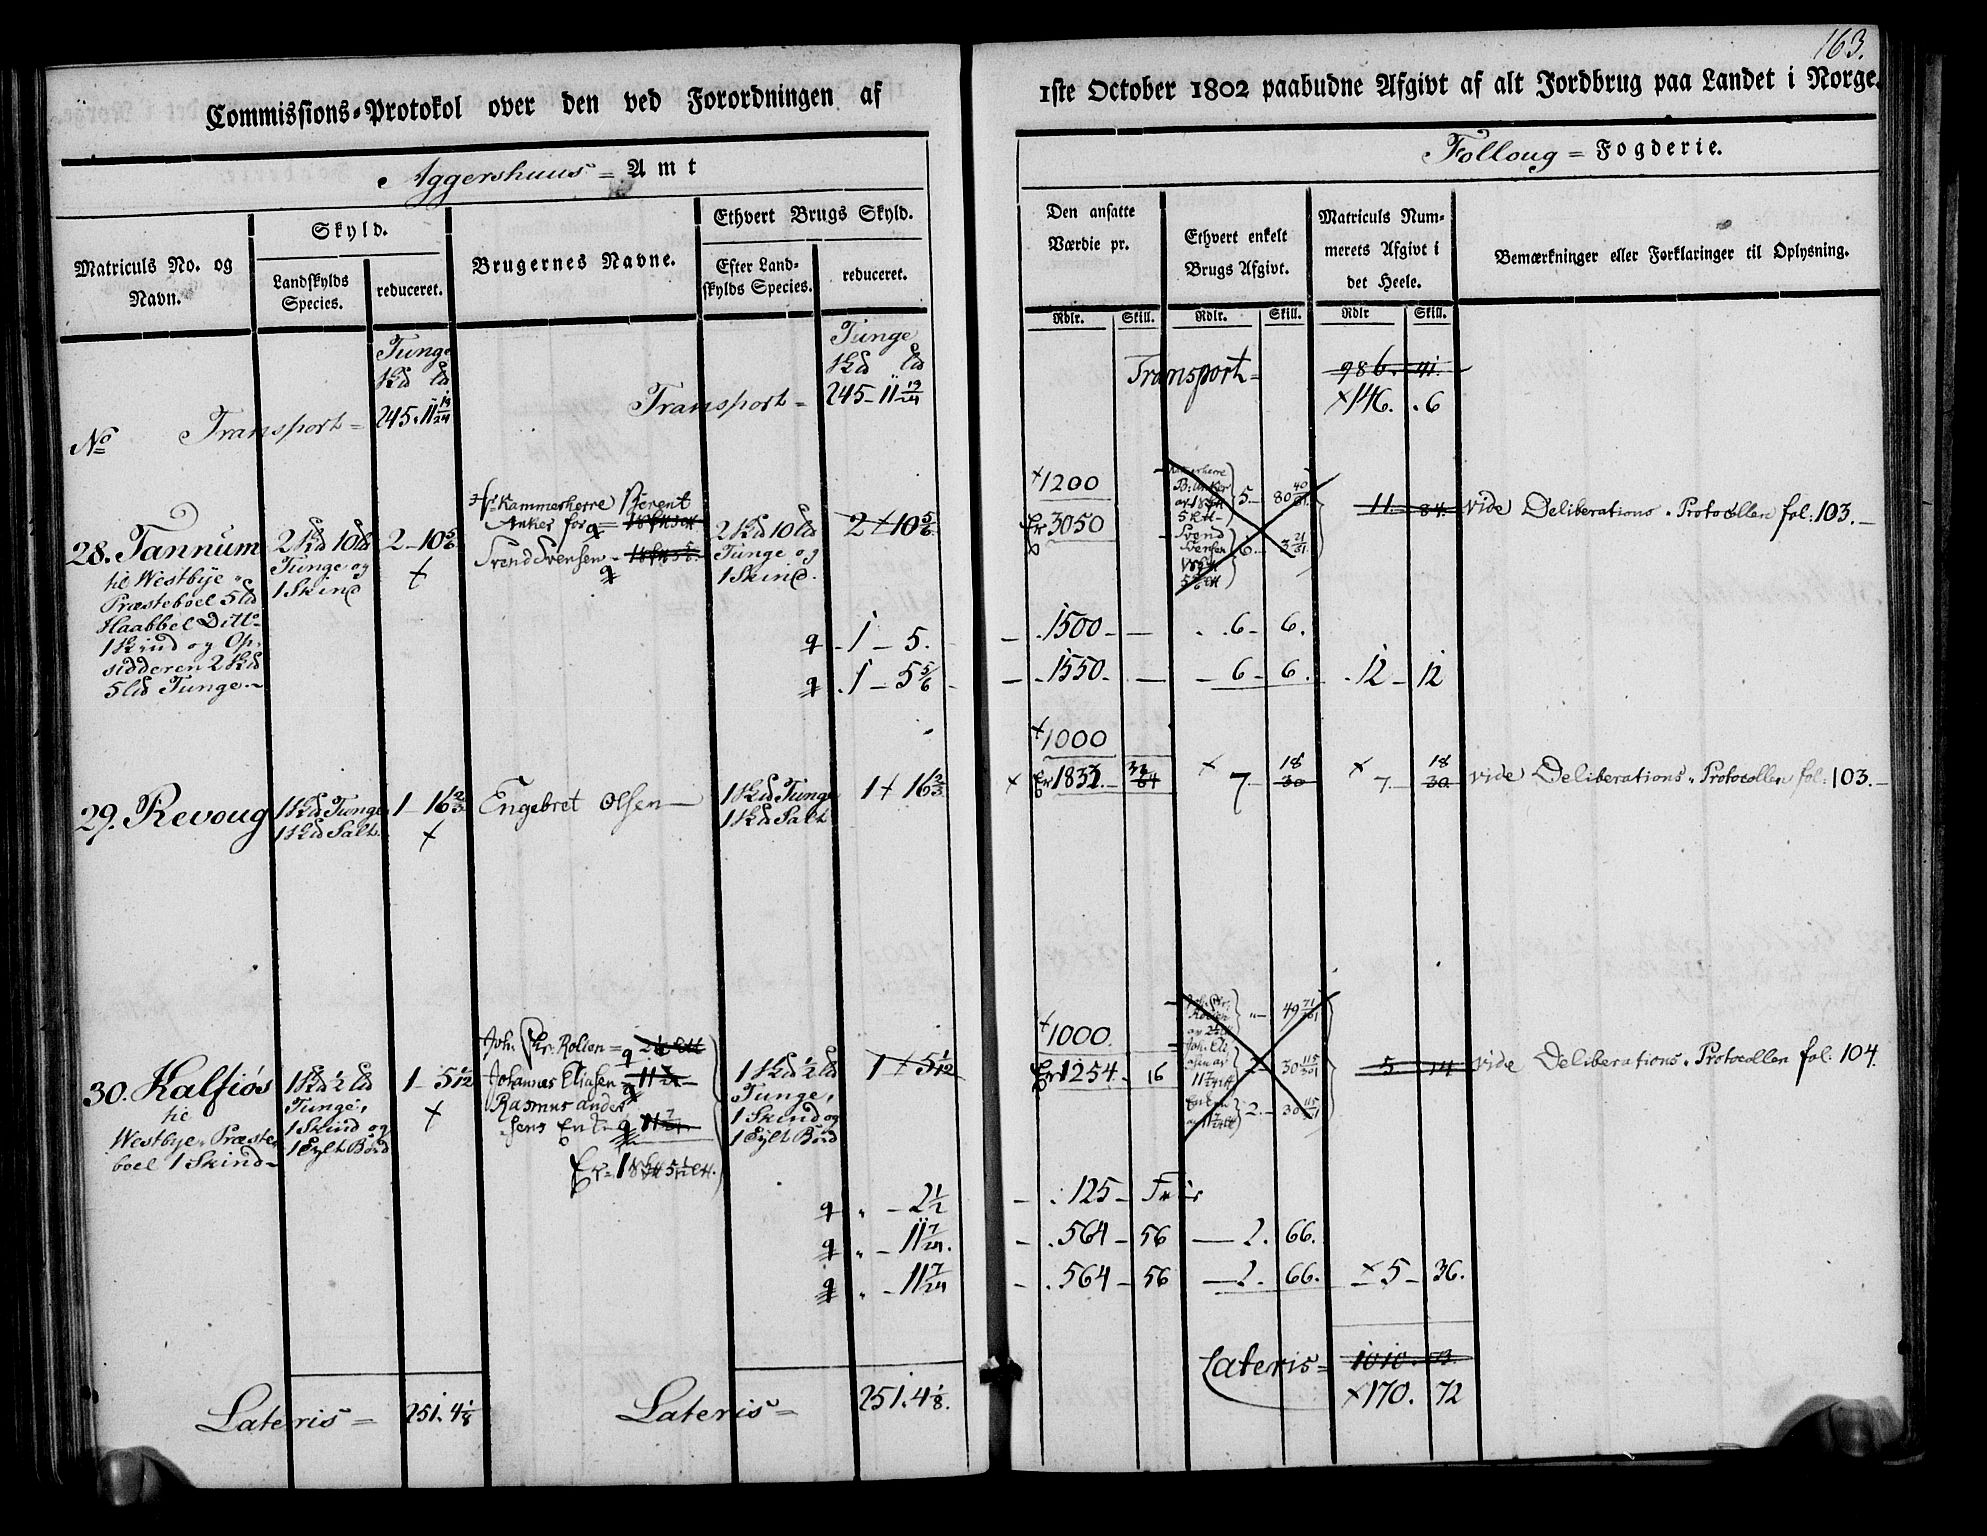 163.
Commissions-Protokol over den ved Forordningen af
1ste October 1802 paabudne Afgivt af alt Jordbrug paa Landet i Norge.
Aggershuus = Amt
Folloug = Fogderie.
Matriculs No. og
Navn.
Skyld.
Landskylds
Species.
reduceret.
Brugernes Navne.
Ethvert Brugs Skyld.
Efter Land-
skylds Species.
reduceret.
Den ansatte
Værdie pr.
Rdlr. Skill.
Ethvert enkelt
Brugs Afgivt.
Rdlr. Skill.
Matriculs Num-
merets Afgivt i
det Heele.
Rdlr Skill.
Bemærkninger eller Forklaringer til Oplysning.
Tunge
245. 11 19/24
No Transport =
Tunge
Transport = 245 - 11 19/24
Transport =
986. 41.
+146. . 6
28. Tannum
til Westbye
Præsteboel 5 ld
Haabbel Ditto
1 Skind og Op-
sidderen 2
5 ld Tunge
10
Tunge og
1 Skind
2 - 10 5/6
+
Kammerherre Berent
Anker for
Svend Svensen
10
Tunge og
1 Skind.
2 + 10 5/6
1 - 5.
1 - 5 5/6
+1200
Er 3050
5. - 80
Svend
Svensen
6.
11. 84.
vide Deliberations Protocollen fol: 103.
1500 6 - 6.
1550. 6 - 6. 12 - 12
29. Revoug
Tunge
Salt
1 - 16 2/3
+
Engebret Olsen
Tunge
Salt
1 + 16 2/3
+1000
+ 7 18 30
+ 7. 18 30.
vide Deliberations Protocollen fol: 103.
30. Kalfiøs
til
Westbye Præste
boel 1 Skind
Tunge,
1 Skind og
1 - 5 1/12
+
Johannes Eliasen 11 7/24
Rasmus Ander
sens Enke 11 7/24
Tunge,
1 Skind og
1 + 5 1/12
2 1/2
11 7/24.
11 7/24
+1000.
Er 1254. 16
5 14
vide Deliberations Protocollen fol: 104.
125 Friis
564 - 56 2. 66.
564 - 56 2. 66. + 5 - 36.
Lateris = 251. 4 1/8
Lateris = 251. 4 1/8.
Lateris = 1010.
+170. 72